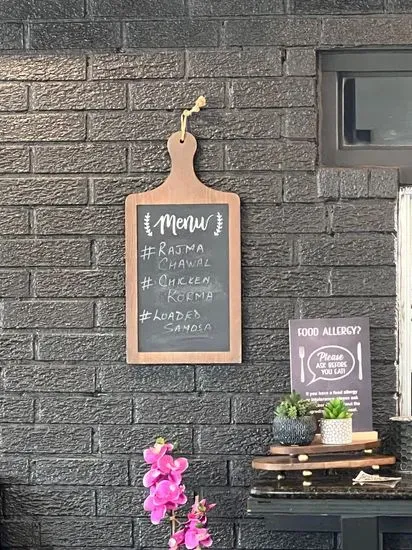 Menu
# RAJMA
CHAWAL
# CHICKEN
KORMA
# LOADED
SAMOSA
FOOD ALLERGY?
Please
ASK BEFORE
YOU EAT!
If you have a food allergy